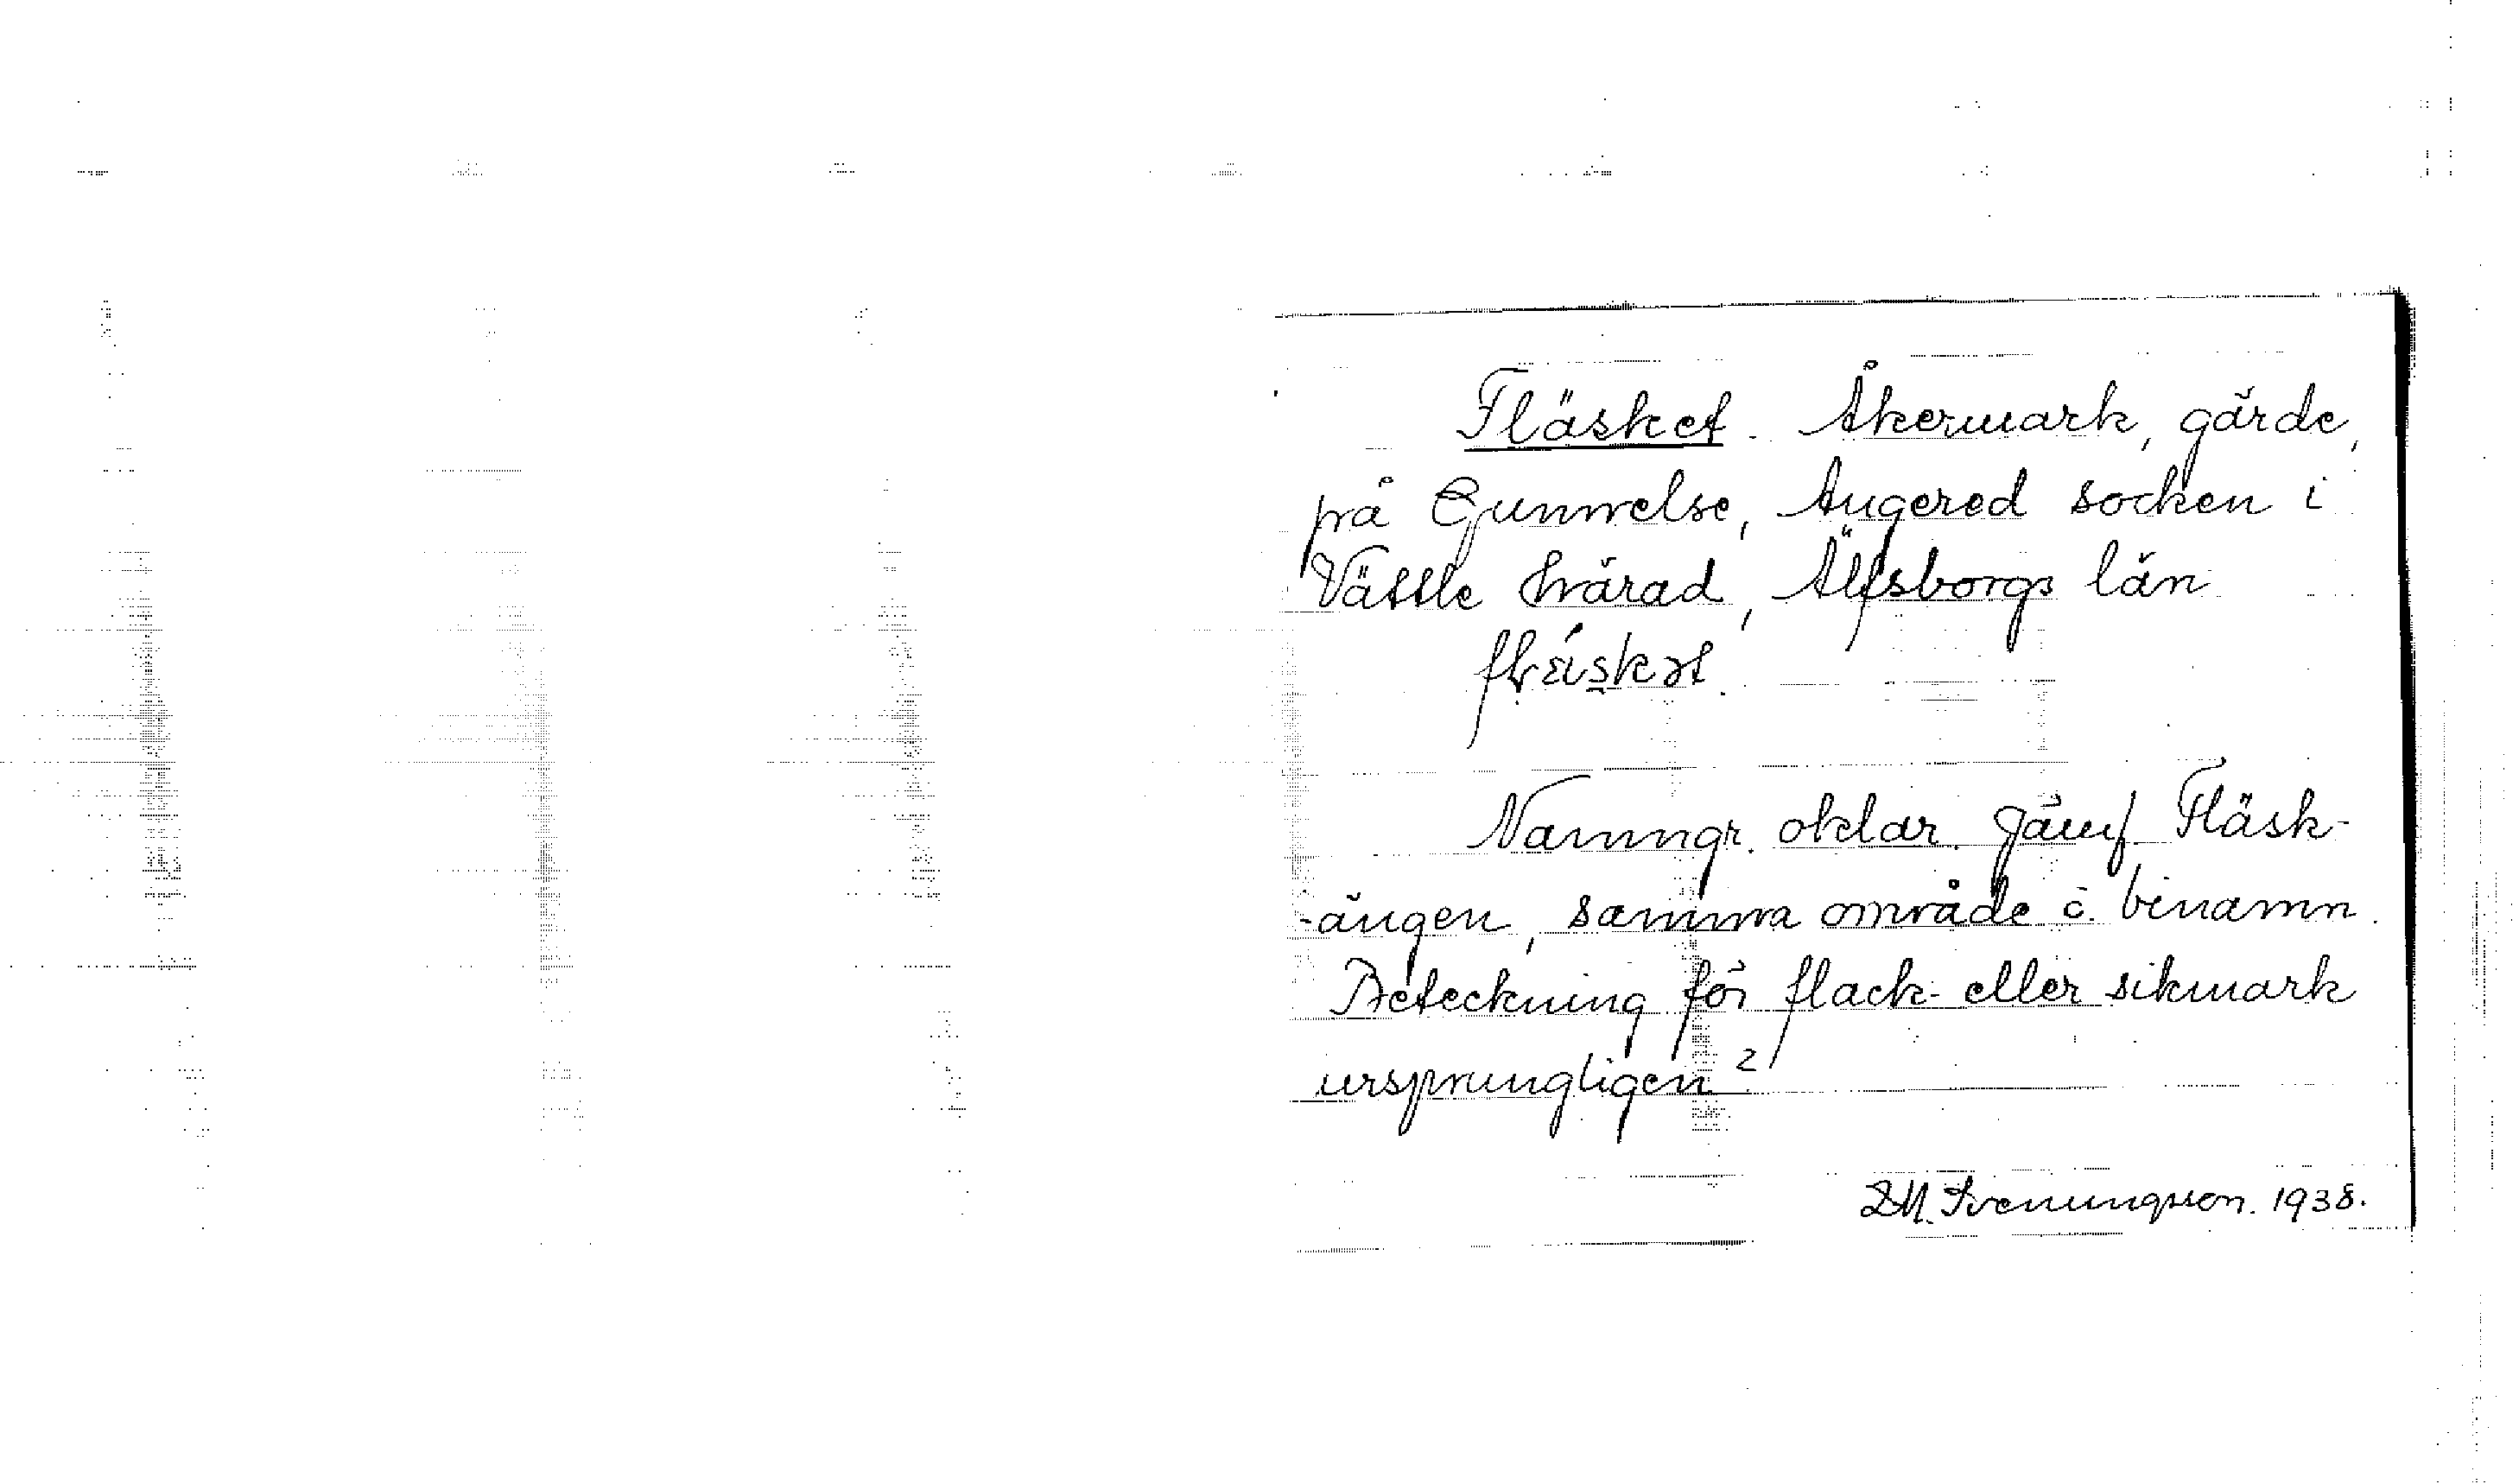 Fläsket. Åkermark, gärde,
på Gunnelse, Angered socken i
Vättle härad, Älfsborgs län.
Namngr. oklar. Jämf. Fläsk-
-ängen, samma område o. binamn.
Beteckning för flack- eller sikmark
ursprungligen?
D.M. Svenungsson. 1938.